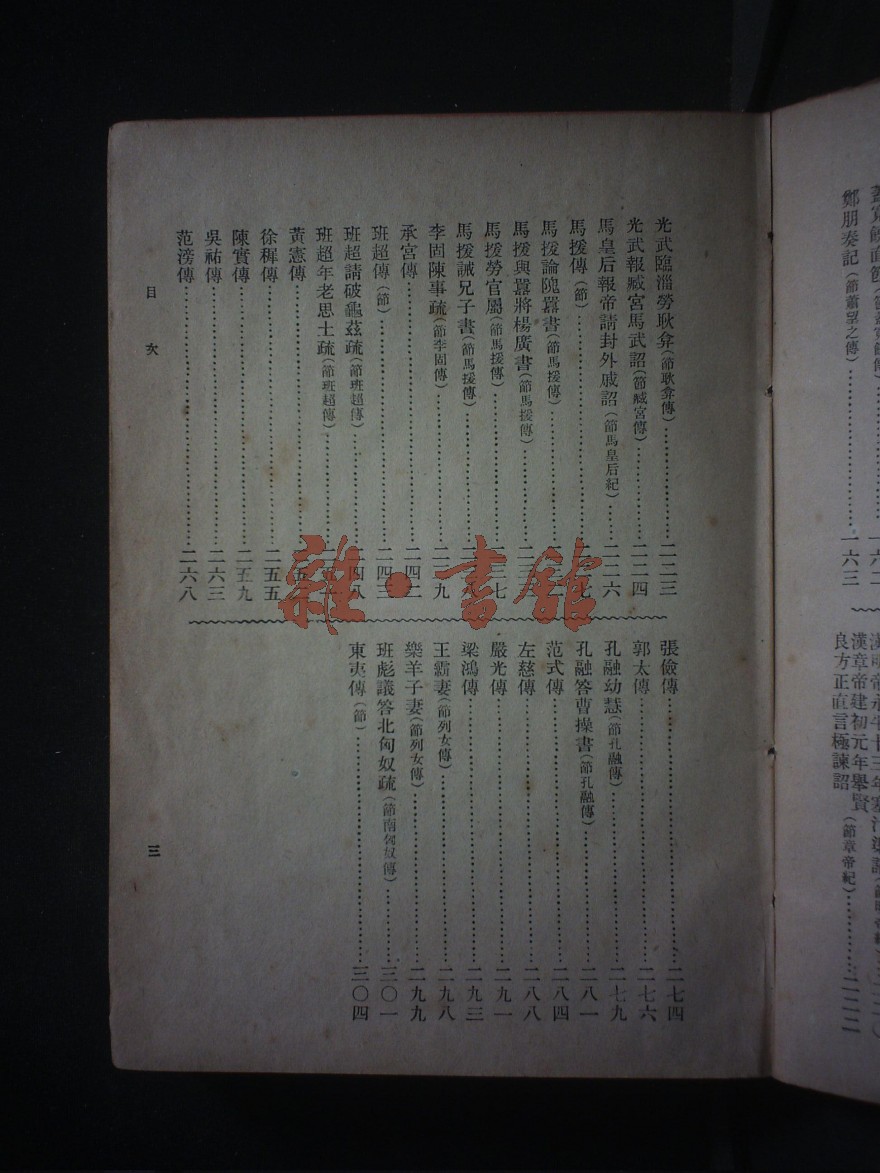 鄭朋奏記（節蕭望之傳）……一六三
漢章帝建初元年舉賢
良方正直言極諫詔（節章帝紀）……二二二
光武臨淄勞耿弇（節耿弇傳）……二二三
光武報臧宮馬武詔（節臧宮傳）……二二四
馬皇后報帝請封外戚詔（節馬皇后紀）……二二六
馬援傳（節）……
馬援論隗囂書（節馬援傳）……
馬援與囂將楊廣書（節馬援傳）……
馬援勞官屬（節馬援傳）……
馬援誡兄子書（節馬援傳）……
李固陳事疏（節李固傳）……二三九
承宮傳……二四二
班超傳（節）……二四三
班超請破龜茲疏（節班超傳）……二四八
班超年老思士疏（節班超傳）……
黃憲傳……
徐穉傳……二五五
陳實傳……二五九
吳祐傳……二六三
范滂傳……二六八
張儉傳……二七四
郭太傳……二七六
孔融幼慧（節孔融傳）……二七九
孔融答曹操書（節孔融傳）……二八一
范式傳……二八四
左慈傳……二八八
嚴光傳……二九一
梁鴻傳……二九三
王霸妻（節列女傳）……二九八
樂羊子妻（節列女傳）……二九九
班彪議答北匈奴疏（節南匈奴傳）……三〇一
東夷傳（節）……三〇四
目次
三
雜·書館